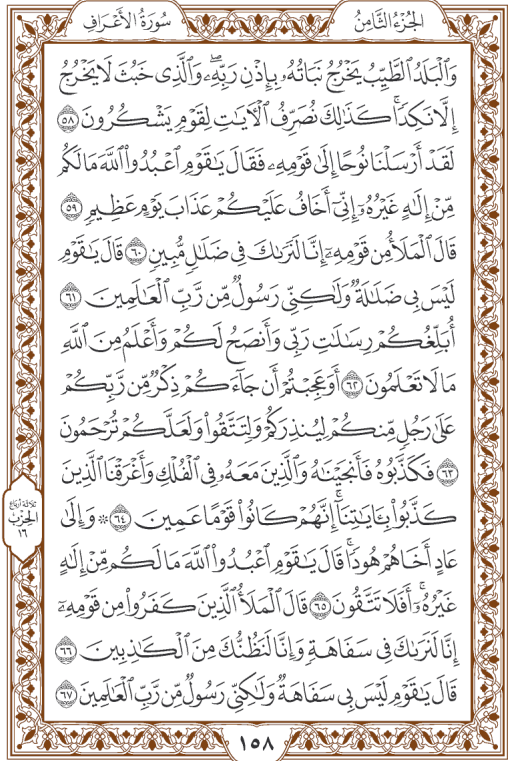 الجُزْءُ الثَّامِنُ
سُورَةُ الأَعْرَافِ
وَٱلْبَلَدُ ٱلطَّيِّبُ يَخْرُجُ نَبَاتُهُۥ بِإِذْنِ رَبِّهِۦۖ وَٱلَّذِى خَبُثَ لَا يَخْرُجُ
إِلَّا نَكِدًاۚ كَذَٰلِكَ نُصَرِّفُ ٱلْآيَٰتِ لِقَوْمٍ يَشْكُرُونَ ٥٨
لَقَدْ أَرْسَلْنَا نُوحًا إِلَىٰ قَوْمِهِۦ فَقَالَ يَٰقَوْمِ ٱعْبُدُوا۟ ٱللَّهَ مَا لَكُم
مِّنْ إِلَٰهٍ غَيْرُهُۥٓ إِنِّىٓ أَخَافُ عَلَيْكُمْ عَذَابَ يَوْمٍ عَظِيمٍ ٥٩
قَالَ ٱلْمَلَأُ مِن قَوْمِهِۦٓ إِنَّا لَنَرَىٰكَ فِى ضَلَٰلٍ مُّبِينٍ ٦٠ قَالَ يَٰقَوْمِ
لَيْسَ بِى ضَلَٰلَةٌ وَلَٰكِنِّى رَسُولٌ مِّن رَّبِّ ٱلْعَٰلَمِينَ ٦١
أُبَلِّغُكُمْ رِسَٰلَٰتِ رَبِّى وَأَنصَحُ لَكُمْ وَأَعْلَمُ مِنَ ٱللَّهِ
مَا لَا تَعْلَمُونَ ٦٢ أَوَعَجِبْتُمْ أَن جَآءَكُمْ ذِكْرٌ مِّن رَّبِّكُمْ
عَلَىٰ رَجُلٍ مِّنكُمْ لِيُنذِرَكُمْ وَلِتَتَّقُوا۟ وَلَعَلَّكُمْ تُرْحَمُونَ
٦٣ فَكَذَّبُوهُ فَأَنجَيْنَٰهُ وَٱلَّذِينَ مَعَهُۥ فِى ٱلْفُلْكِ وَأَغْرَقْنَا ٱلَّذِينَ
كَذَّبُوا۟ بِـَٔايَٰتِنَآۚ إِنَّهُمْ كَانُوا۟ قَوْمًا عَمِينَ ٦٤ ۞ وَإِلَىٰ
عَادٍ أَخَاهُمْ هُودًاۚ قَالَ يَٰقَوْمِ ٱعْبُدُوا۟ ٱللَّهَ مَا لَكُم مِّنْ إِلَٰهٍ
غَيْرُهُۥٓۚ أَفَلَا تَتَّقُونَ ٦٥ قَالَ ٱلْمَلَأُ ٱلَّذِينَ كَفَرُوا۟ مِن قَوْمِهِۦٓ
إِنَّا لَنَرَىٰكَ فِى سَفَاهَةٍ وَإِنَّا لَنَظُنُّكَ مِنَ ٱلْكَٰذِبِينَ ٦٦
قَالَ يَٰقَوْمِ لَيْسَ بِى سَفَاهَةٌ وَلَٰكِنِّى رَسُولٌ مِّن رَّبِّ ٱلْعَٰلَمِينَ ٦٧
ثلاثة أرباع
الحزب
١٦
١٥٨